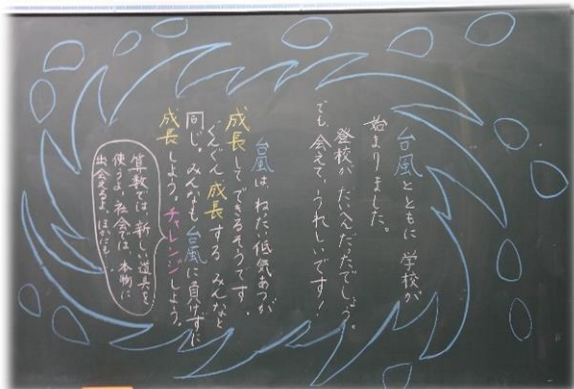 台風とともに 学校が
始まりました。
登校がたいへんだったでしょう。
でも、会えて、うれしいです!
台風は、ねったい低気あつが
成長してできるそうです。
ぐんぐん成長する みんなと
同じ。みんなも台風に負けずに
成長しよう。チャレンジしよう。
算数では、新しい道具を
使うよ。社会では、本物に
出会えるよ。ほかにも…